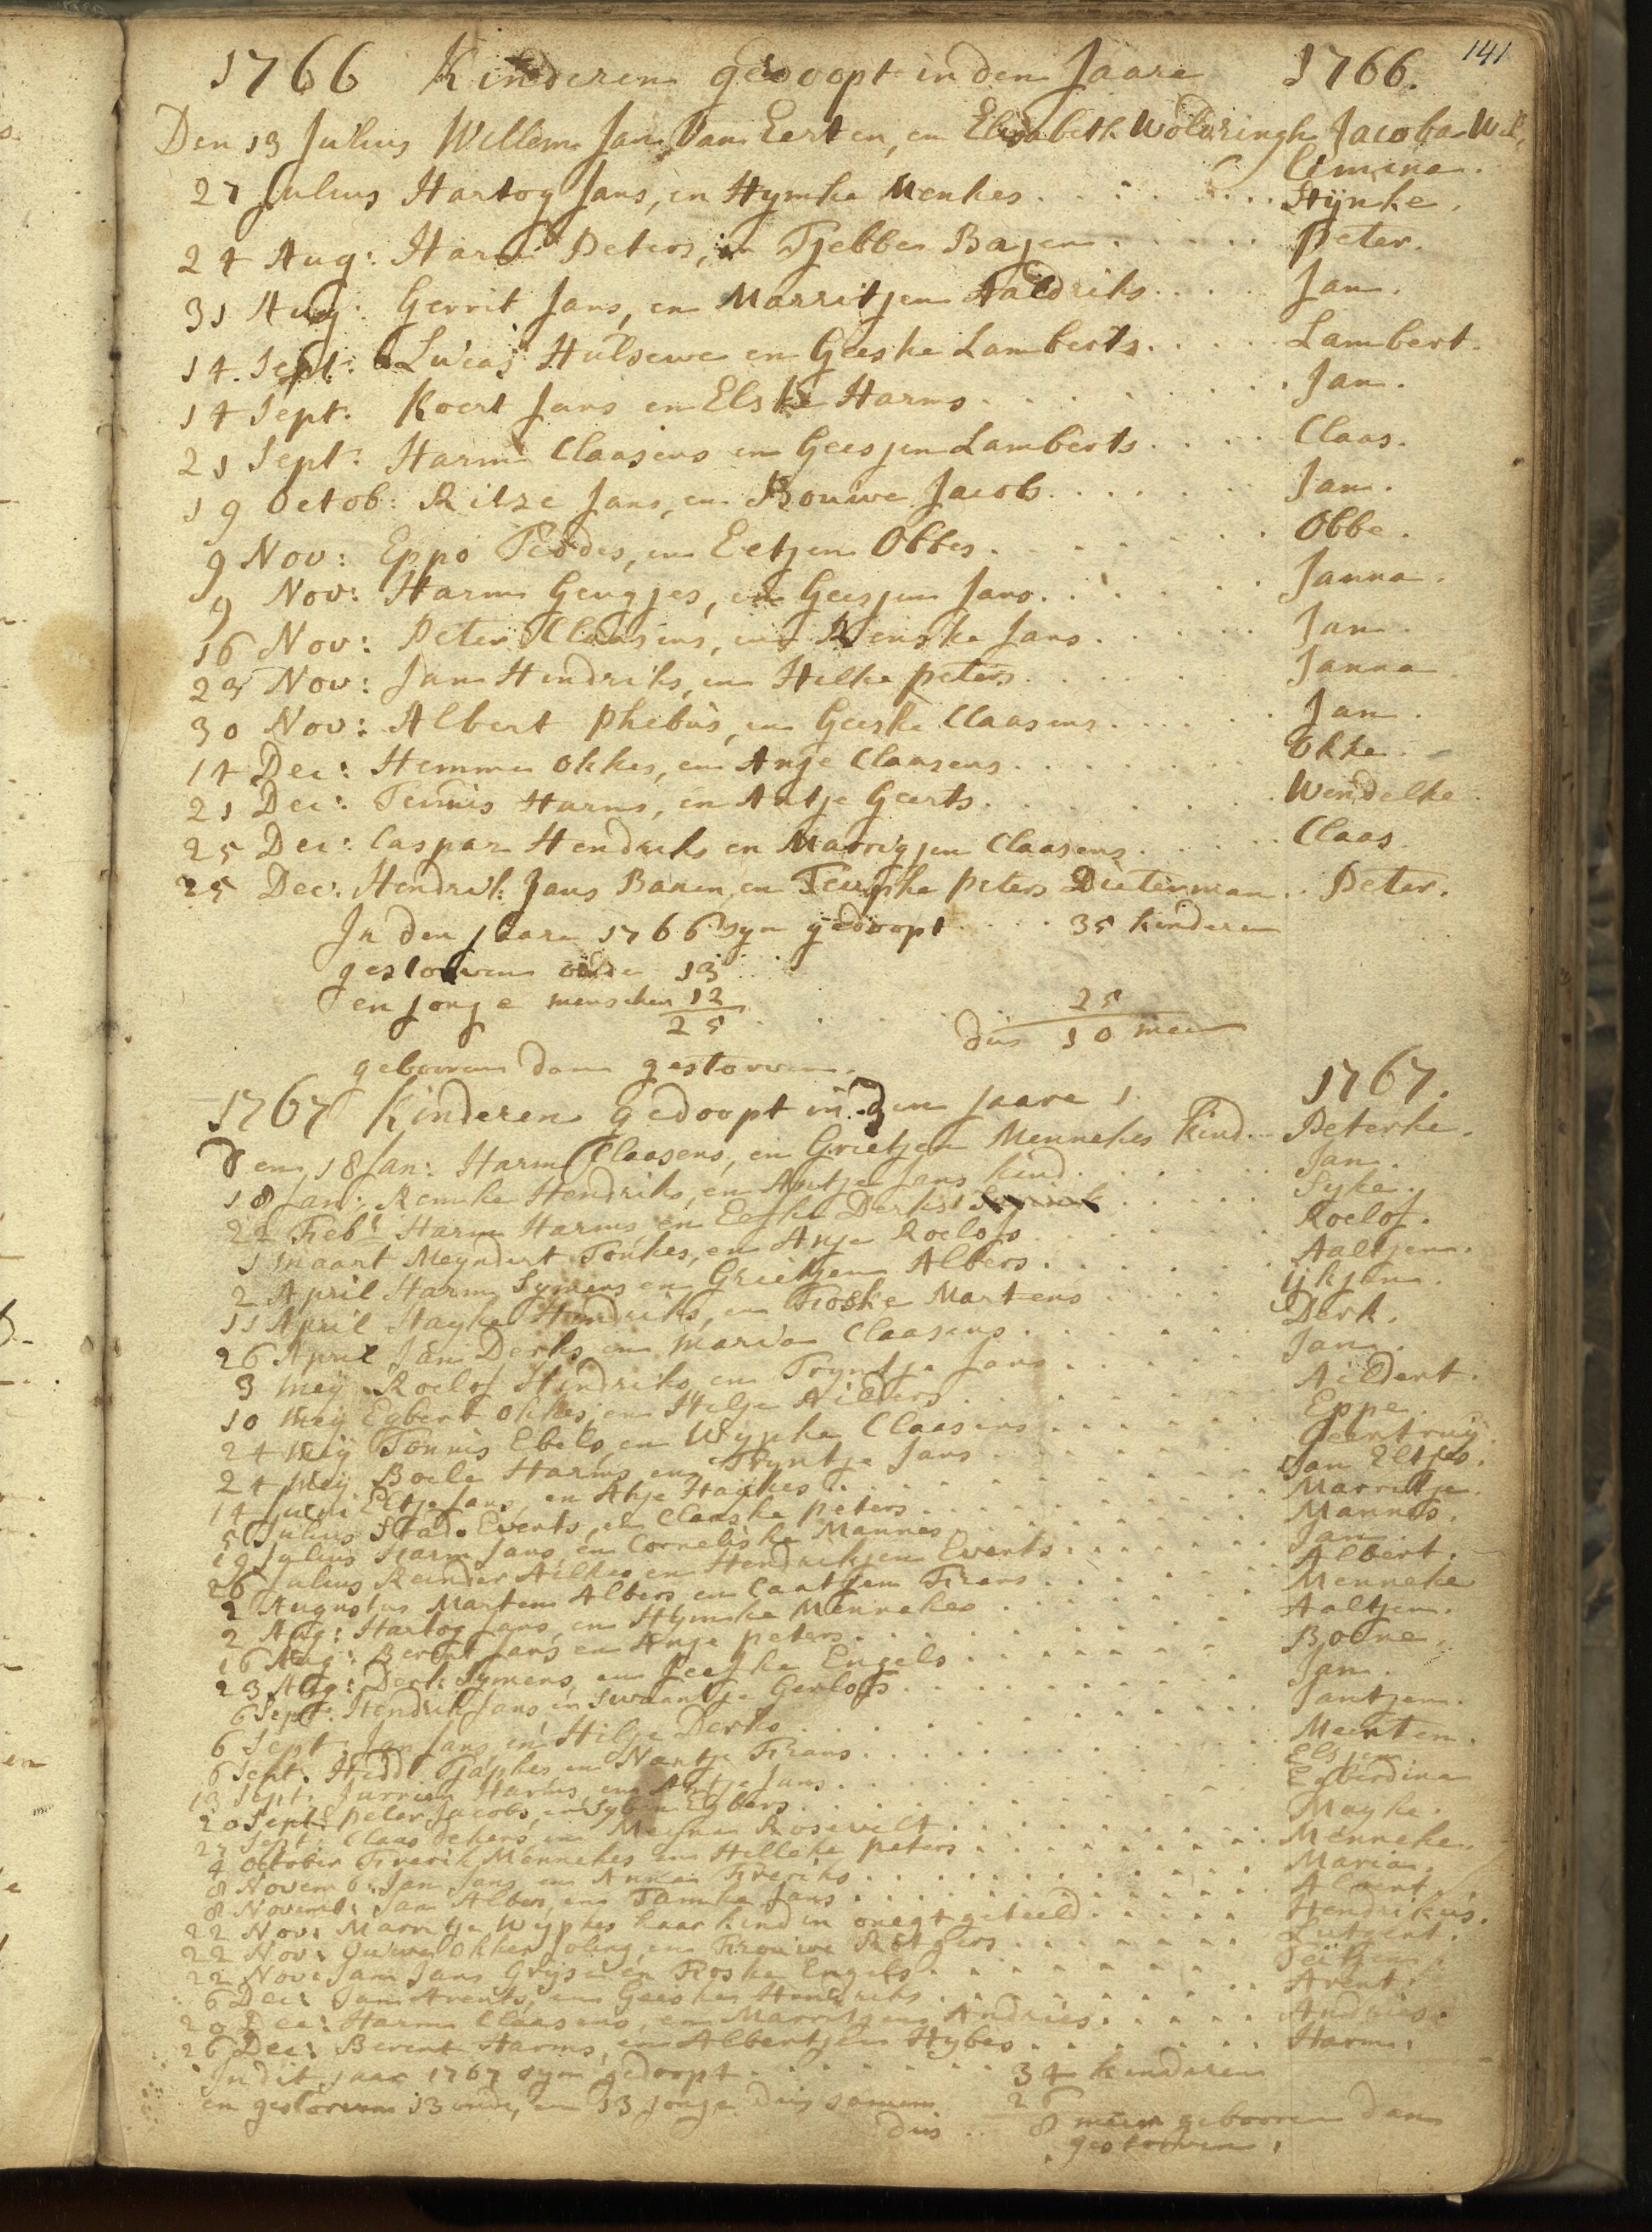 141
1766 Kinderen gedoopt in den Jaare 1766.
Den 13 Julius Willem Jan Van Eerten, en Elisabeth Woldringh Jacoba Wil,
limina.
27 Julius Hartog Jans, en Hymke Menkes. . . . . . . . Stijnke.
24 Aug: Harm Peters, en Tjebbe Bajen. . . . . . Peter.
31 Aug: Gerrit Jans, en Marritjen Aaldriks. . . . Jan.
14. Sept: Lucas Hulsewe en Geeske Lamberts. . . . . Lambert.
14 Sept: Koert Jans en Elske Harms. . . . . . . . Jan.
21 Sept: Harm Claasens en Geesjen Lamberts . . . . Claas.
19 Octob: Ritze Jans, en Bouwe Jacobs. . . . . . . Jan.
9 Nov: Eppo Tiddes, en Eetjen Obbes. . . . . . . Obbe.
9 Nov: Harm Geugjes, en Geesjen Jans. . . . . . Janna.
16 Nov: Peter Claasens, en Renske Jans. . . . . . Jan.
23 Nov: Jan Hendriks, en Hilke peters. . . . . Janna
30 Nov: Albert Phebus, en Geeske Claasens. . . . . . Jan.
14 Dec: Hemme Okkes, en Anje Claasens. . . . . . . Okke.
21 Dec: Teunis Harms, en Antje Geerts. . . . . . . Wendelke.
25 Dec: Caspar Hendriks en Marrigjen Claasens . . . . . Claas.
25 Dec: Hendrik Jans Banen, en Teupke peters Dieterman. . Peter.
In den Jaare 1766 syn gedoopt. . . . 35 kinderen
gestorven oude 13
en jonge menschen 12 25
25 . . . . dus 10 meer
gebooren dan gestorven.
1767 Kinderen gedoopt in den Jaare 1767.
Den 18 Jan: Harm Claasens, en Grietjen Mennekes kind... Peterke.
18 Jan: Remke Hendriks, en Antje Jans kind. . . . . . Jan.
22 Feb: Harm Harms en Eefke Derks . . . . . Syke.
1 Maart Meyndert Tonkes, en Anje Roelofs . . . . . . Roelof.
2 April Harm Symens en Grietjen Albers. . . . . . Aaltjen.
11 April Hayke Hendriks, en Froske Martens . . . . ijkjen.
26 April Jan Derks en Maria Claasens . . . . . Derk.
3 Meij Roelof Hindriks, en Tryntje Jans . . . . . Jan.
10 Meij Egbert Okkes, en Hilje Ailders . . . . . Aildert.
24 Meij Tonnis Ebels, en Wypke Claasens . . . . . Eppe.
24 Meij Boele Harms, en Tryntje Jans . . . . . Geertruij.
14 Junii Eltje Jans, en Ahje Haijkes . . . . . . Jan Eltjes.
5 Julius Stad. Everts, en Claaske peters. . . . . . Marritje.
19 Julius Harm Jans, en Corneliske Mannes. . . . . . Mannes.
26 Julius Reinder Ailkes en Hendrikjen Everts. . . . . Jan.
2 Augustus Marten Albers en Caatjen Frans . . . . . Albert.
2 Aug: Hartog Jans, en Hymke Mennekes . . . . . Menneke
16 Aug: Berent Jans en Anje peters. . . . . . . Aaltjen.
23 Aug: Derk Symens, en Jeefke Engels . . . . . . Boene.
6 Sept: Hendrik Jans en Swaantje Gerlofs. . . . . . Jan.
6 Sept: Jan Jans, en Hilje Derks . . . . . . Jantjen.
6 Sept: Hidde Tjapkes en Nantje Frans. . . . . . Meerten.
13 Sept: Jurrien Harms, en Antje Jans. . . . . . Elsjen.
20 Sept: Peter Jacobs, en Sybin Egbers. . . . . . Egberdina
27 Sept: Claas Dekens en Meyna Rosevelt . . . . . . Mayke.
4 October Frerik Mennekes en Hilleke peters . . . . . Menneke.
8 Novemb: Jan Jans, en Anna Freriks . . . . . . Maria.
8 Novemb: Jan Albers, en Tamke Jans . . . . . . Albert.
22 Nov: Marritje Wypkes haar kind in onegt geteeld. . . . . Hendrikus.
22 Nov: Okkes Joling, en Frouwe Rotgers . . . . . Lutgert.
22 Nov: Jan Jans Gryse en Froske Engels . . . . . . Teitjen.
6 Dec: Jan Arents, en Geeske Hendriks . . . . . . Arent.
20 Dec: Harm Claasens, en Marritjen Andries. . . . . Andries.
26 Dec: Berent Harms, en Albertjen Hybes . . . . . . Harm.
In dit jaar 1767 syn gedoopt . . . . . . 34 kinderen
en gestorven 13 oude, en 13 jonge dus samen 26
dus . . 8 meer gebooren dan
gestorven.